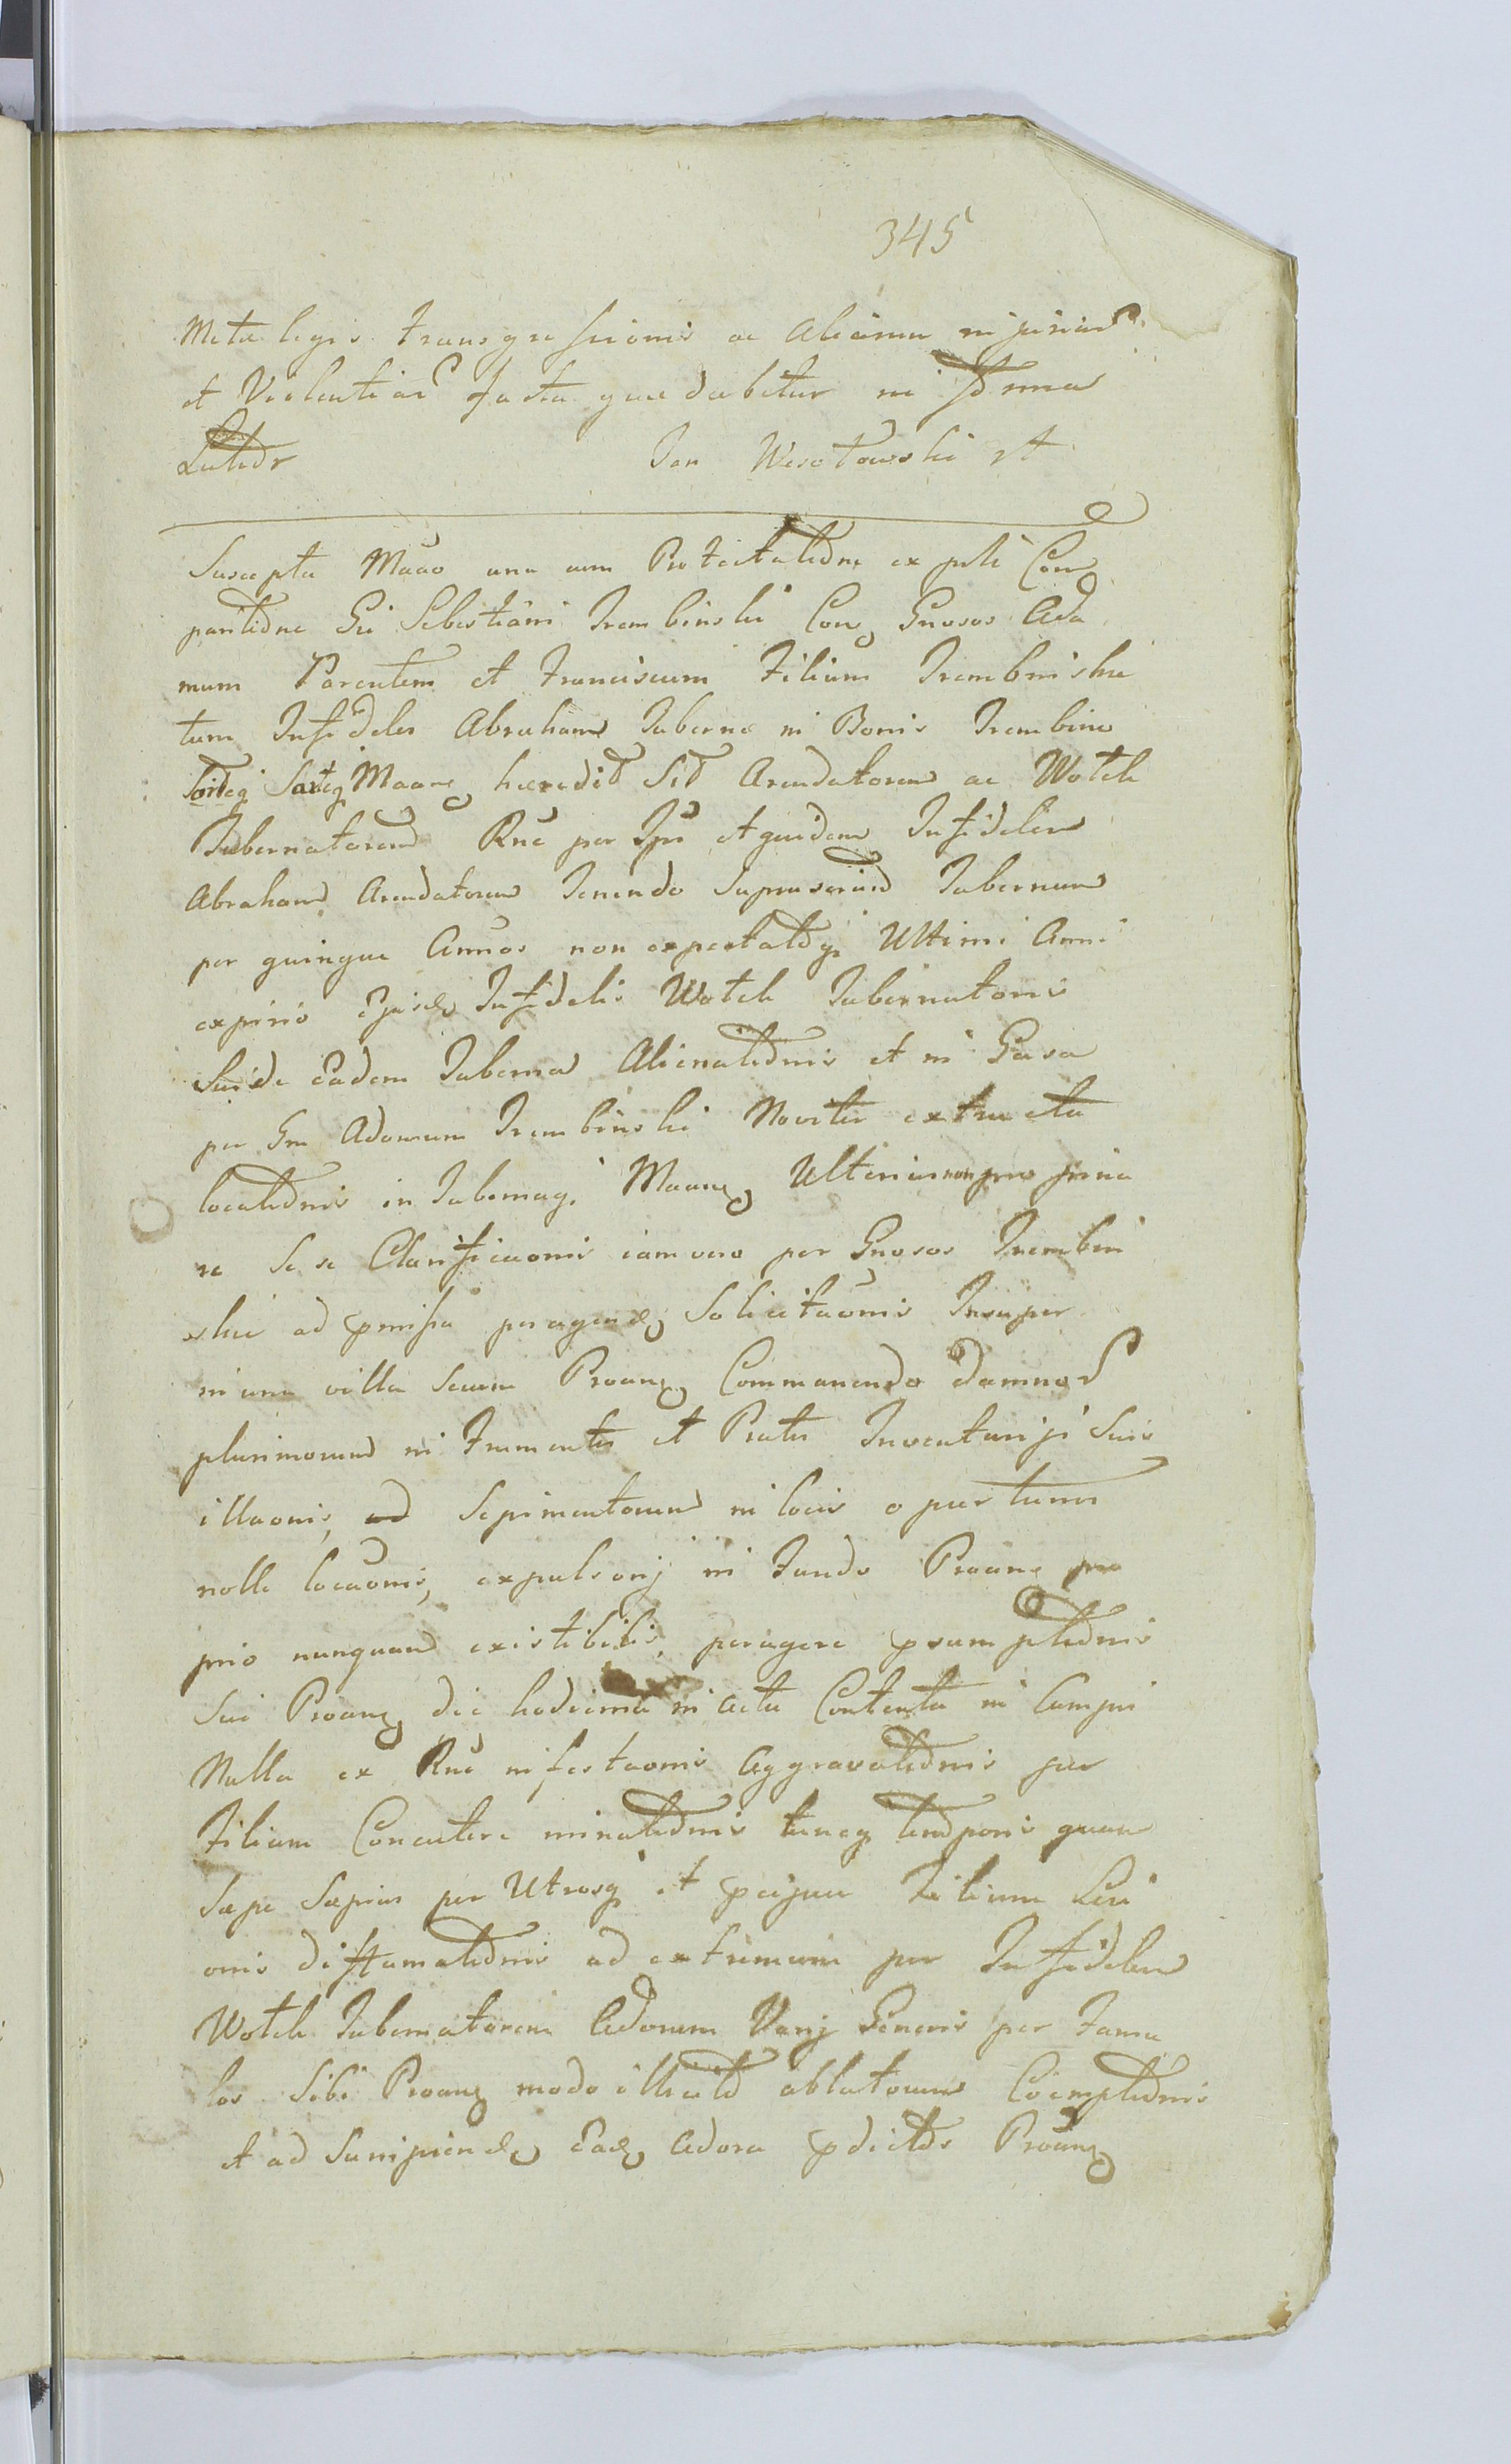 345
Metu legis transgressionis ac aliarum injuriar
et Violentiar facta quae dabitur in forma
Jan Wesołowski st
Suscepta Mãao una cum Protestatione ex pcti Com
paritione Gi Sebestiani Trembinski Con Gnosos Ada
mum Parentem et Franciscum Filium Trembinskie
tum Infideles Abraham Taberne in Bonis Trembino
Maan heredit Sit Arendatorem ac Wotek
Tabernatorem Rne per Ips et quidem Infidelem
Abraham Arendatorem Tenendo Supruscriud Tabernam
per quinque Annos non expectatoq Ultimi Anni
expirio Ejusd Infidelis Wotek Tabernatoris
Suide Eadem Taberna Alienationis et in Casa
per Gm Adamum Trembinski Noviter extructa
locationis in Tabernaq Maan Ulterius non pro pina
re se se Clarificaonis iam vero per Gnosos Trembin
skie ad pmissa peragend Solicitaonis Insuper
in una villa secum Proan Commanendo damnor
plurimorum in Frumentis et Pratis Inventariji Suis
illaonis, ad Sepimentorum in locis opurtunis
nolle locaonis, expulsonj in Fundo Proane pro
prio nunquam existibilis, peragere psumptionis
Sui Proane die hodierna in acta Contenta in Campi
Nulla ex Rne infestaonis Aggravationis per
Filium Concutere minationis tunq temporis quam
Sæpe Sæpius per Utrosq et pcipue Filium Lesi
onis diffamationis ad extremum per Infidelem
Wotek Tabernatorem Vanj Generis per Famu
los Sibi Proane modo illicito ablatorum Coemptionis
et ad Suscipiend Ead pdicto Proane